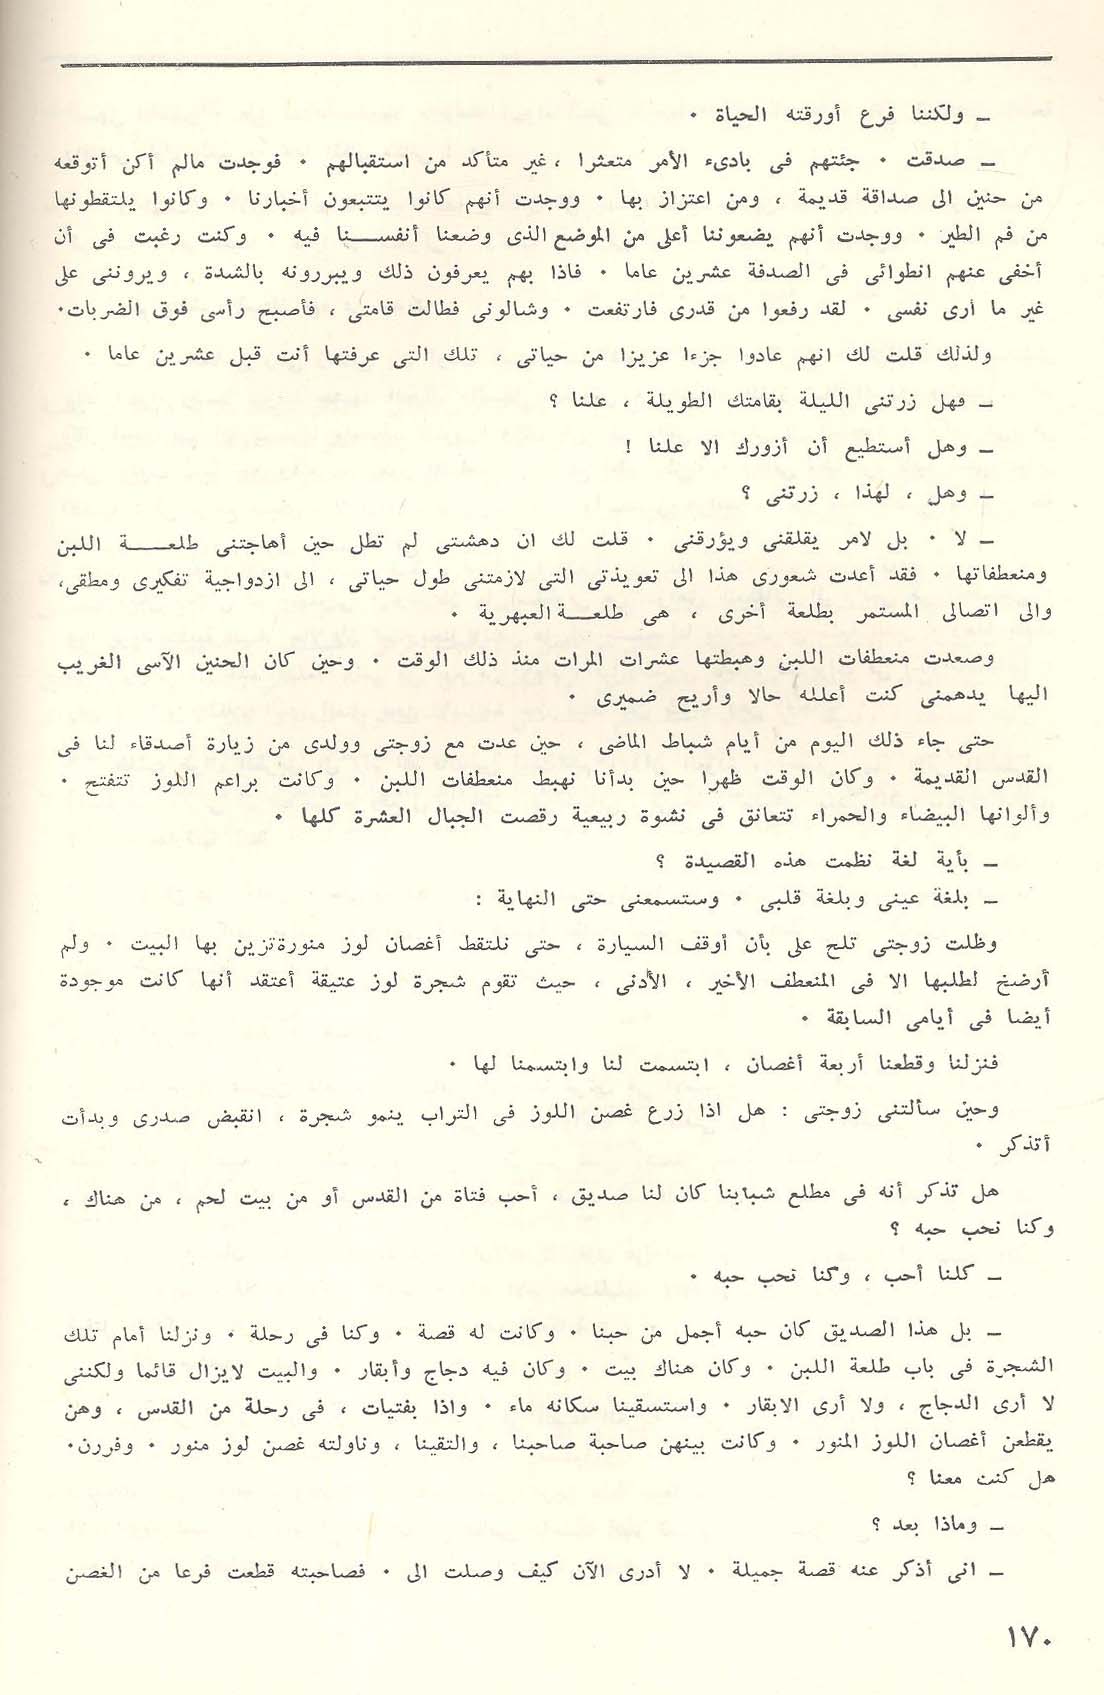 ـ ولكننا فرع أورقته الحياة ٠
ـ صدقت ٠ جئتهم فى بادىء الأمر متعثرا ، غير متأكد من استقبالهم ٠ فوجدت مالم أكن أتوقعه
من حنين الى صداقة قديمة ، ومن اعتزاز بها ٠ ووجدت أنهم كانوا يتتبعون أخبارنا ٠ وكانوا يلتقطونها
من فم الطير ٠ ووجدت أنهم يضعوننا أعلى من الموضع الذى وضعنا أنفســـنا فيه ٠ وكنت رغبت فى أن
أخفى عنهم انطوائى فى الصدفة عشرين عاما ٠ فاذا بهم يعرفون ذلك ويبررونه بالشدة ، ويروننى على
غير ما أرى نفسى ٠ لقد رفعوا من قدرى فارتفعت ٠ وشالونى فطالت قامتى ، فأصبح رأسى فوق الضربات٠
ولذلك قلت لك انهم عادوا جزءا عزيزا من حياتى ، تلك التى عرفتها أنت قبل عشرين عاما ٠
ـ فهل زرتنى الليلة بقامتك الطويلة ، علنا ؟
ـ وهل أستطيع أن أزورك الا علنا !
ـ وهل ، لهذا ، زرتنى ؟
ـ لا ٠ بل لامر يقلقنى ويؤرقنى ٠ قلت لك ان دهشتى لم تطل حين أهاجتنى طلعـــة اللبن
ومنعطفاتها ٠ فقد أعدت شعورى هذا الى تعويذتى التى لازمتنى طول حياتى ، الى ازدواجية تفكيرى ومطقى،
والى اتصالى المستمر بطلعة أخرى ، هى طلعـــة العبهرية ٠
وصعدت منعطفات اللبن وهبطتها عشرات المرات منذ ذلك الوقت ٠ وحين كان الحنين الآسى الغريب
اليها يدهمنى كنت أعلله حالا وأريح ضميرى ٠
حتى جاء ذلك اليوم من أيام شباط الماضى ، حين عدت مع زوجتى وولدى من زيارة أصدقاء لنا فى
القدس القديمة ٠ وكان الوقت ظهرا حين بدأنا نهبط منعطفات اللبن ٠ وكانت براعم اللوز تتفتح ٠
وألوانها البيضاء والحمراء تتعانق فى نشوة ربيعية رقصت الجبال العشرة كلها ٠
ـ بأية لغة نظمت هذه القصيدة ؟
ـ بلغة عينى وبلغة قلبى ٠ وستسمعنى حتى النهاية :
وظلت زوجتى تلح على بأن أوقف السيارة ، حتى نلتقط أغصان لوز منورةتزين بها البيت ٠ ولم
أرضخ لطلبها الا فى المنعطف الأخير ، الأدنى ، حيث تقوم شجرة لوز عتيقة أعتقد أنها كانت موجودة
أيضا فى أيامى السابقة ٠
فنزلنا وقطعنا أربعة أغصان ، ابتسمت لنا وابتسمنا لها ٠
وحين سألتنى زوجتى : هل اذا زرع غصن اللوز فى التراب ينمو شجرة ، انقبض صدرى وبدأت
أتذكر ٠
هل تذكر أنه فى مطلع شبابنا كان لنا صديق ، أحب فتاة من القدس أو من بيت لحم ، من هناك ،
وكنا نحب حبه ؟
ـ كلنا أحب ، وكنا نحب حبه ٠
ـ بل هذا الصديق كان حبه أجمل من حبنا ٠ وكانت له قصة ٠ وكنا فى رحلة ٠ ونزلنا أمام تلك
الشجرة فى باب طلعة اللبن ٠ وكان هناك بيت ٠ وكان فيه دجاج وأبقار ٠ والبيت لايزال قائما ولكننى
لا أرى الدجاج ، ولا أرى الابقار ٠ واستسقينا سكانه ماء ٠ واذا بفتيات ، فى رحلة من القدس ، وهن
يقطعن أغصان اللوز المنور ٠ وكانت بينهن صاحبة صاحبنا ، والتقينا ، وناولته غصن لوز منور ٠ وفررن٠
هل كنت معنا ؟
ـ وماذا بعد ؟
ـ انى أذكر عنه قصة جميلة ٠ لا أدرى الآن كيف وصلت الى ٠ فصاحبته قطعت فرعا من الغصن
١٧٠